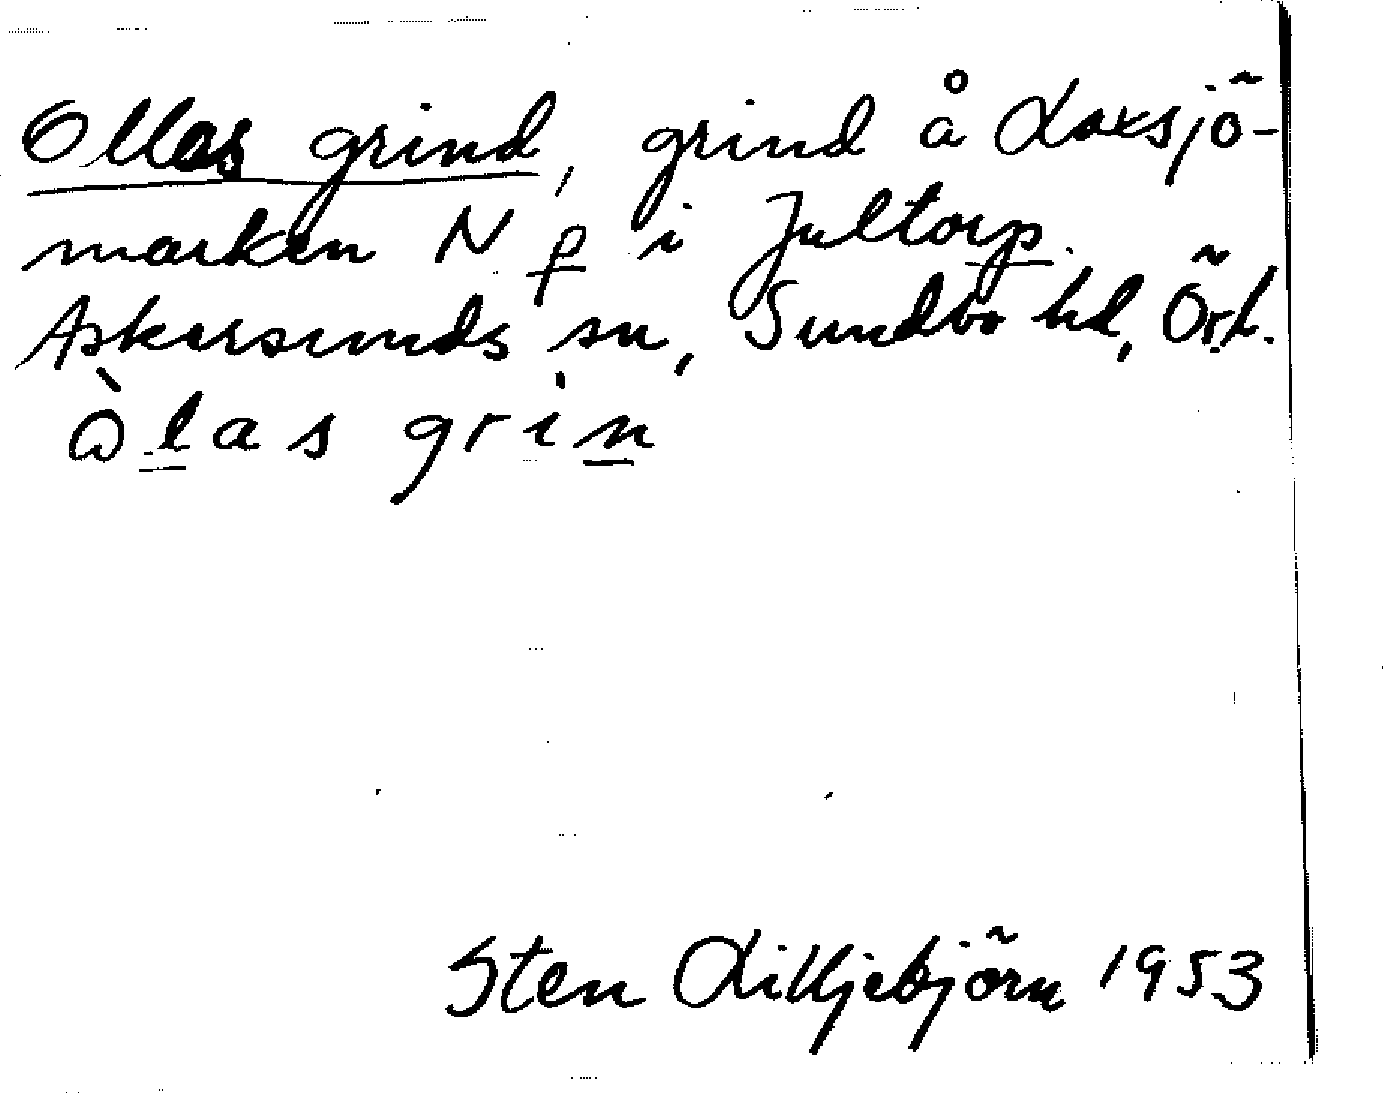 Ollas grind, grind å Laxsjö-
marken N p i Jultorp.
Askersunds sn, Sundbo hd, Ör.l.
òlas grin
Sten Lilljebjörn 1953